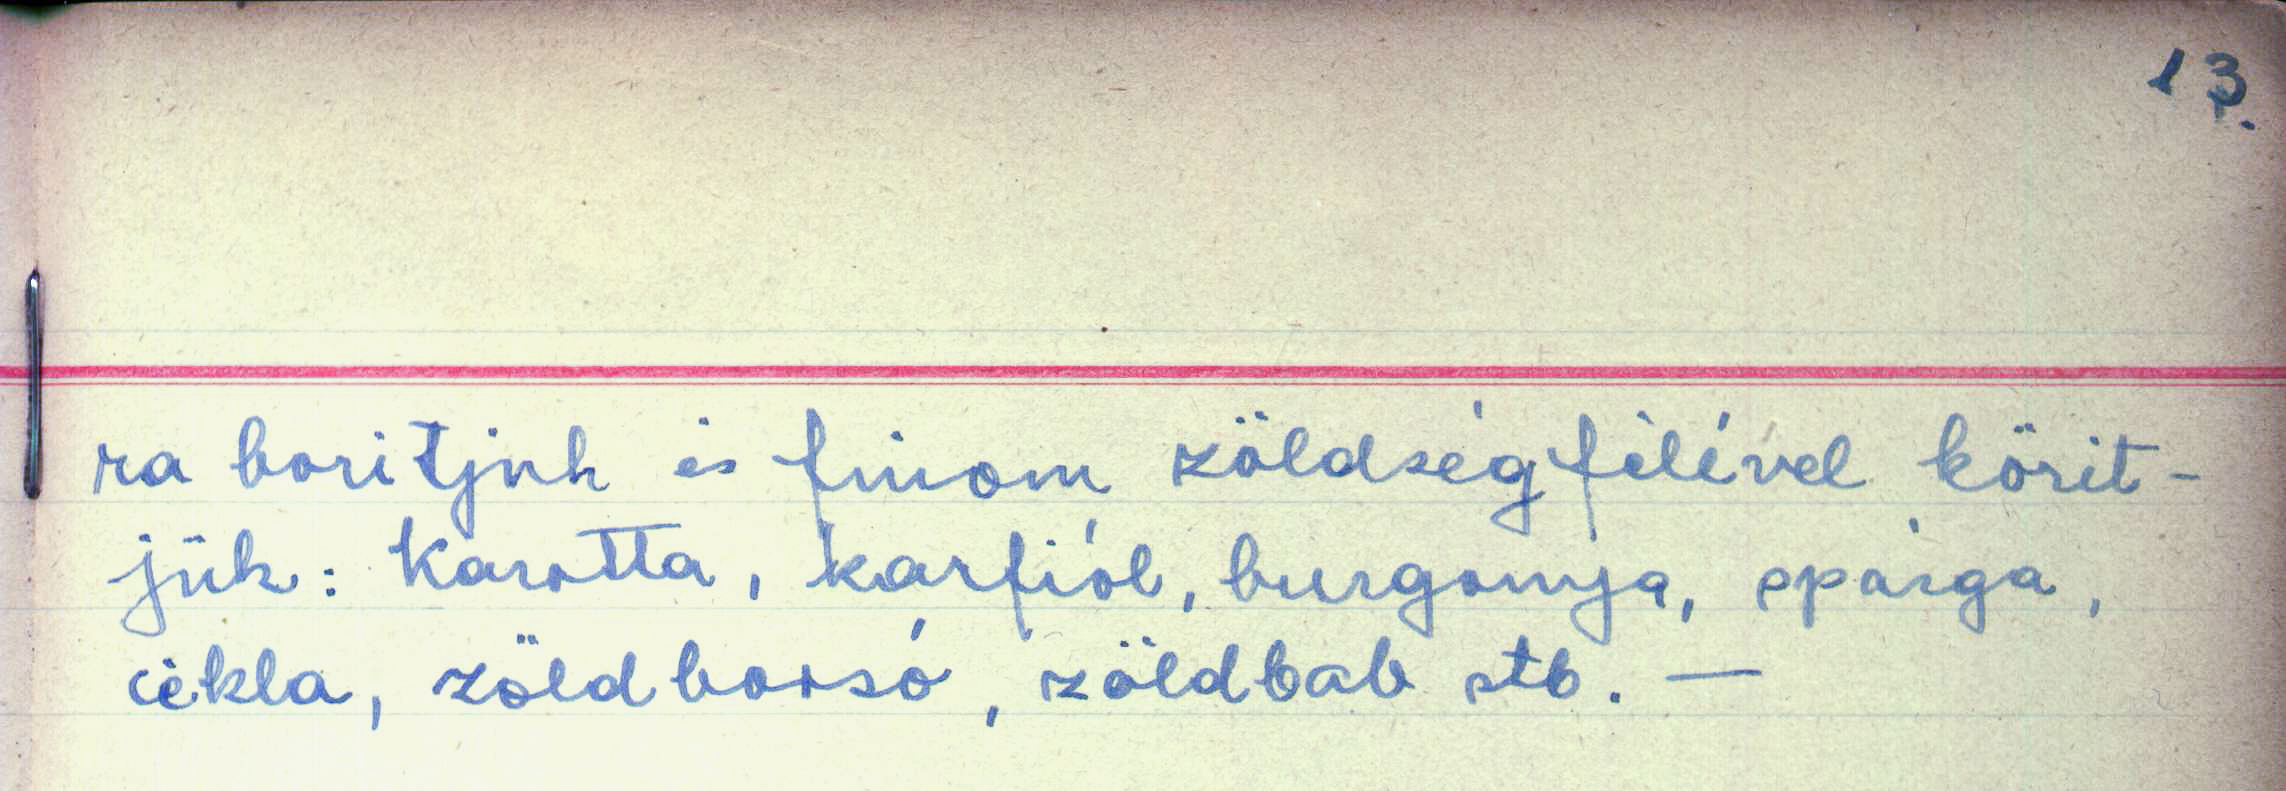 13.
ra boritjuk és finom zöldségfélével körit-
jük: Karotta, karfiól, burgonya, spárga,
cékla, zöldborsó, zöldbab stb. —